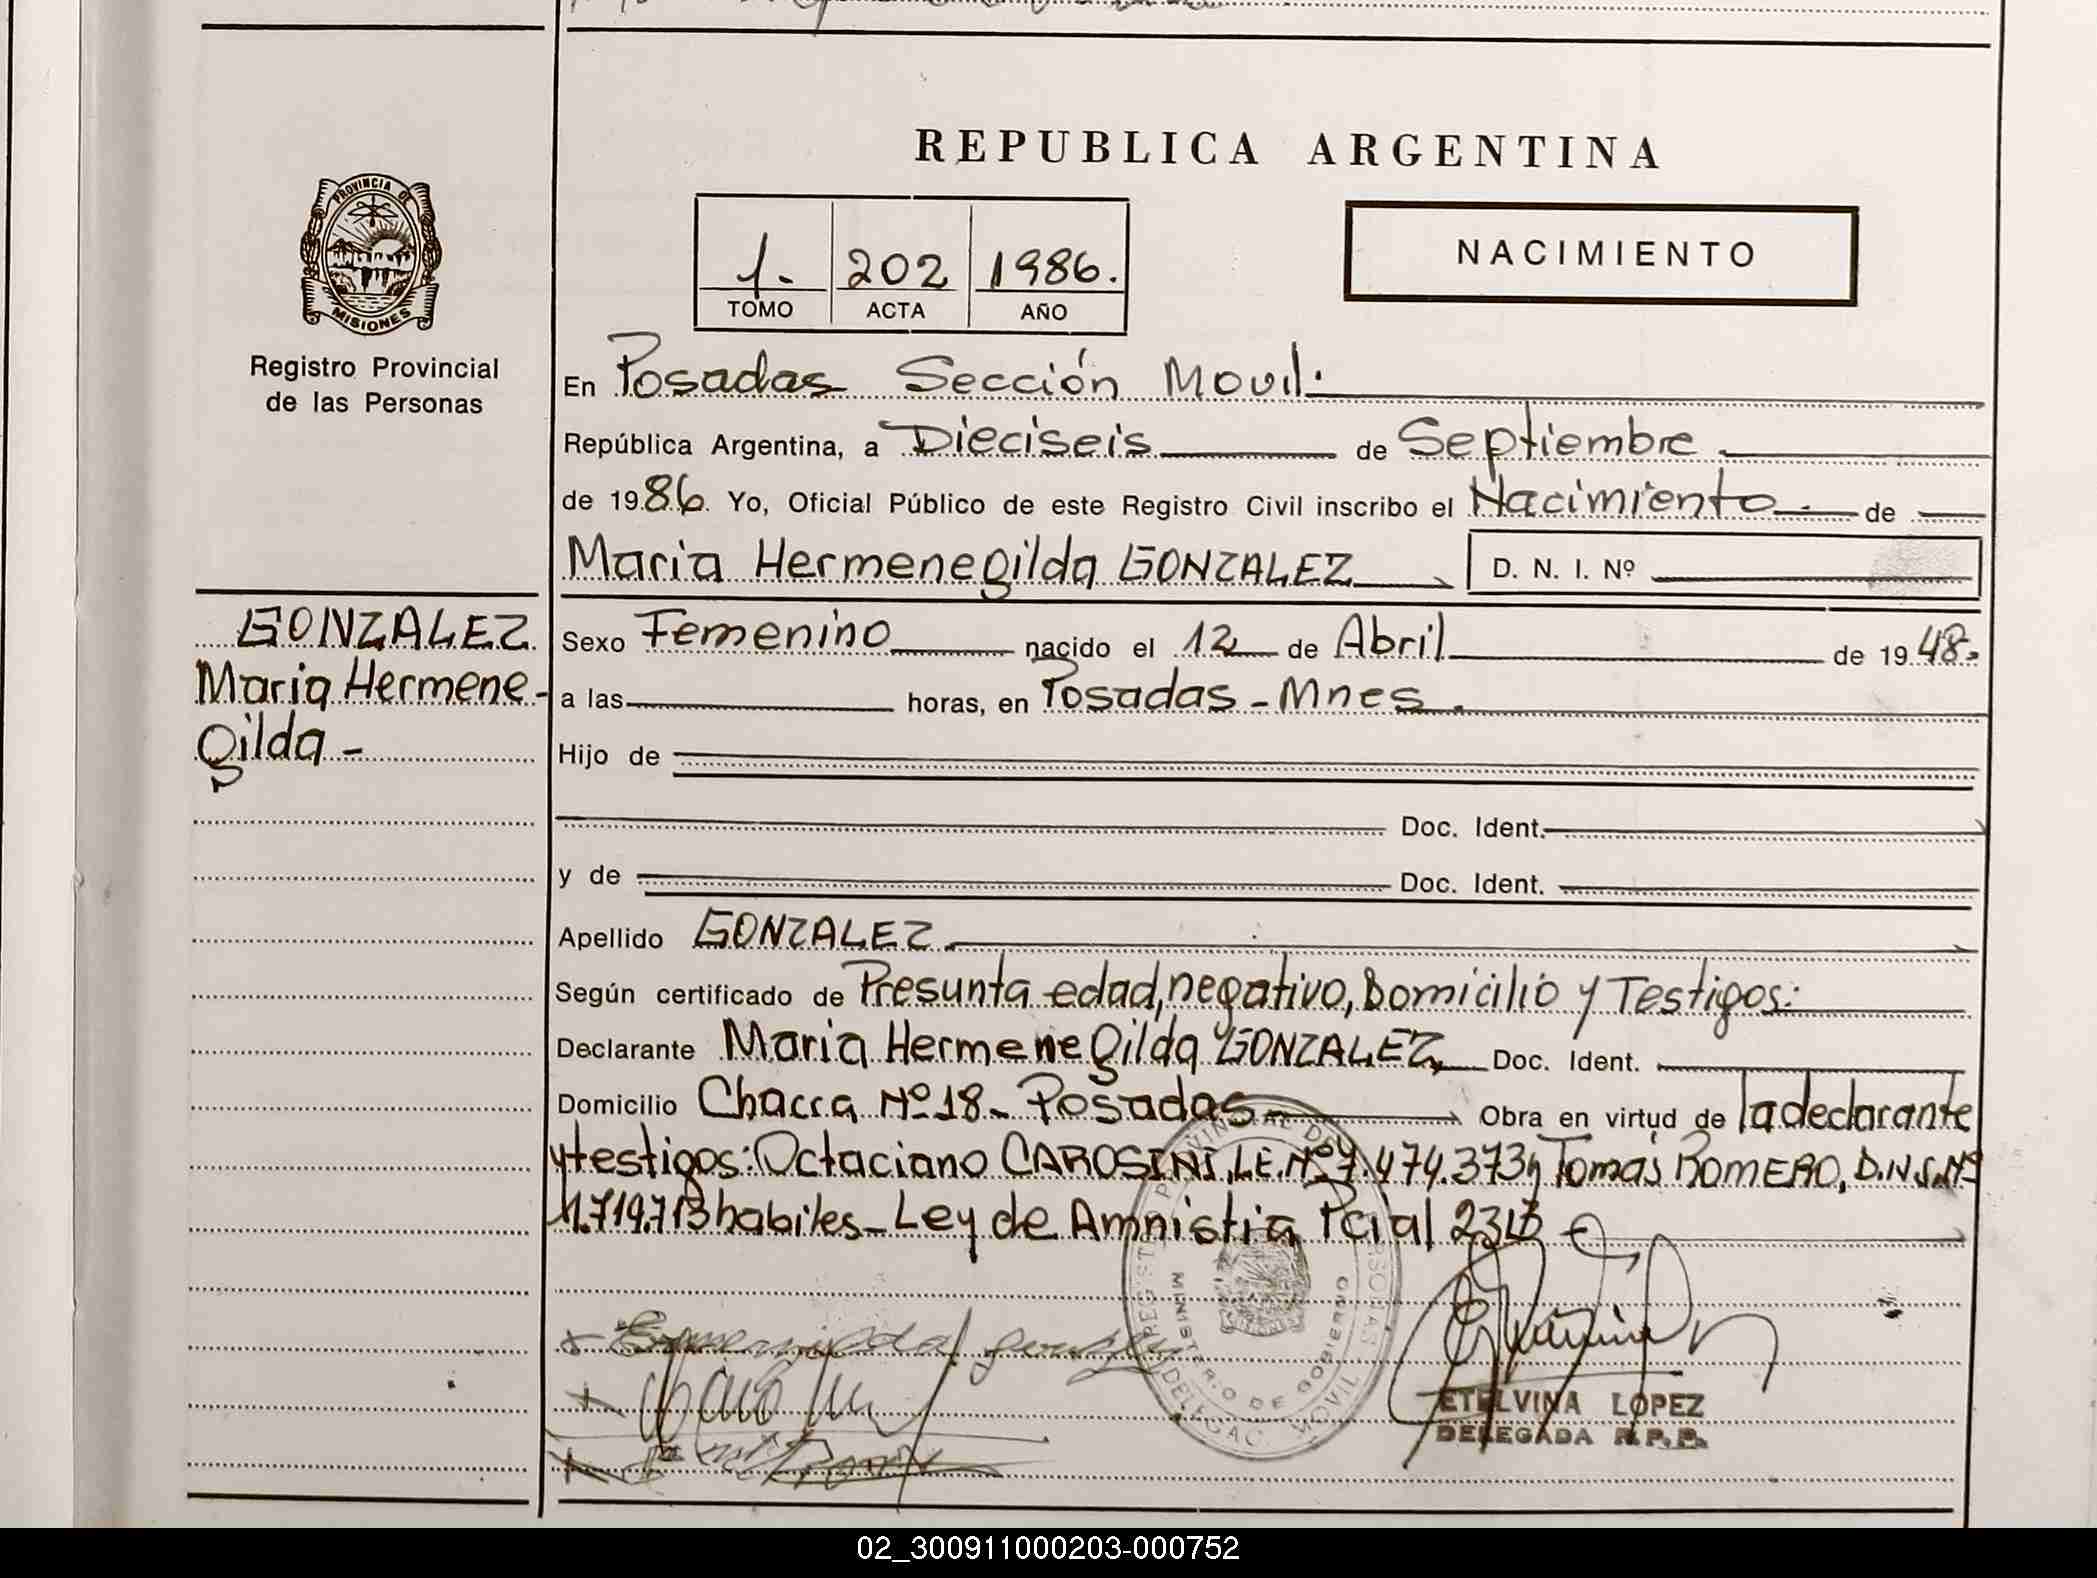 REPUBLICA ARGENTINA
PROVINCIA DE
MISIONES
Registro Provincial
de las Personas
1. 202 1986.
TOMO ACTA AÑO
NACIMIENTO
En Posadas Sección Movil.
República Argentina, a Dieciseis de Septiembre
de 1986. Yo, Oficial Público de este Registro Civil inscribo el Nacimiento de
Maria Hermenegilda GONZALEZ D. N. I. Nº
GONZALEZ
Maria Hermene-
gilda -
Sexo Femenino nacido el 12 de Abril de 1948.
a las horas, en Posadas - Mnes.
Hijo de
Doc. Ident.
y de Doc. Ident.
Apellido GONZALEZ
Según certificado de Presunta edad, negativo, Domicilio y Testigos:
Declarante Maria Hermenegilda GONZALEZ, Doc. Ident.
Domicilio Chacra Nº 18 - Posadas Obra en virtud de la declarante
y testigos: Octaciano CAROSINI, L.E. Nº 7.474.373 y Tomás ROMERO, D.N.I. Nº
1.719.713 habiles - Ley de Amnistia Pcial
MINISTERIO DE GOBIERNO
DELEGAC. MOVIL
ETELVINA LOPEZ
DELEGADA R.P.P.
02_300911000203-000752